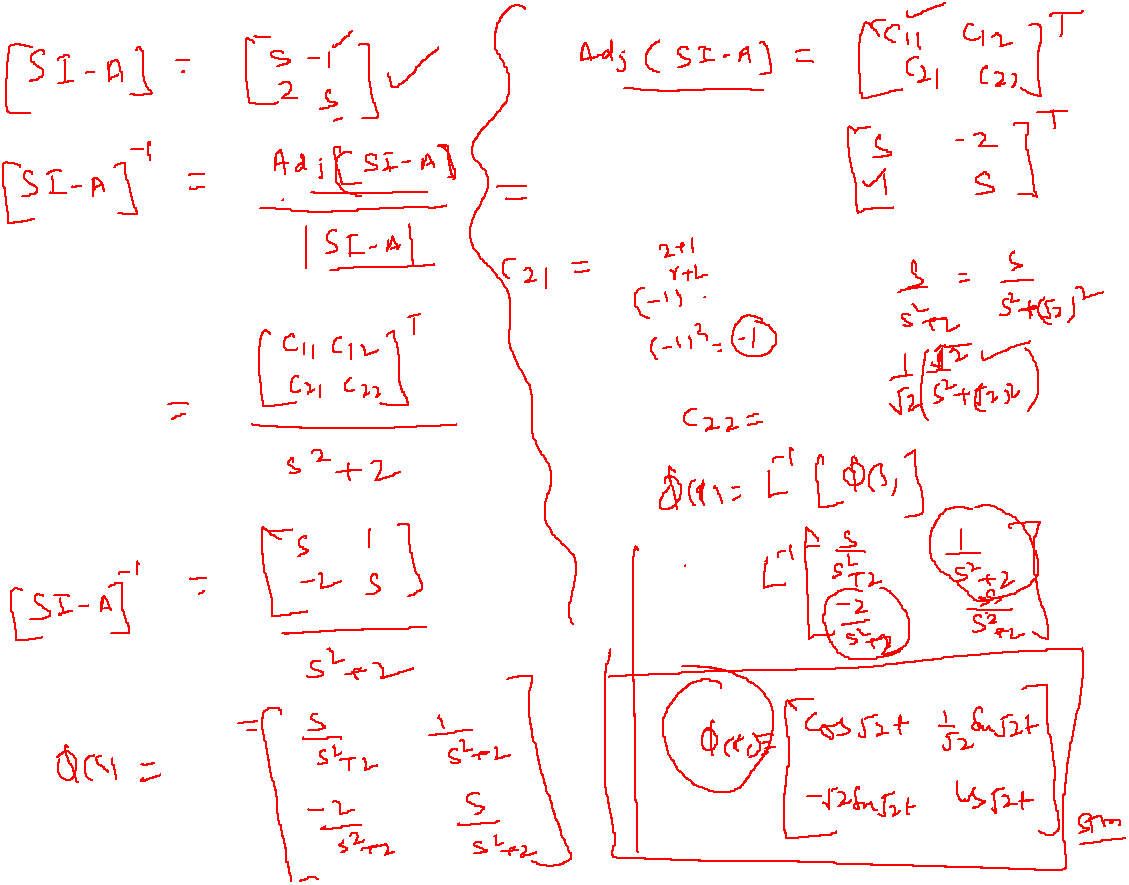 [SI-A] = [S -1
2 S]
[SI-A]⁻¹ = Adj[SI-A]
|SI-A|
= [C₁₁ C₁₂
C₂₁ C₂₂]ᵀ
s²+2
[SI-A]⁻¹ = [S 1
-2 S]
s²+2
Φ(s) = [S/(s²+2) 1/(s²+2)
-2/(s²+2) S/(s²+2)]
Adj (SI-A] = [C₁₁ C₁₂
C₂₁ C₂₂]ᵀ
=
[S -2
1 S]ᵀ
C₂₁ =
2+1
(-1)
(-1)³ = -1
C₂₂ =
S/(s²+2) = S/(s²+(√2)²)
1/√2 ( √2/(s²+(√2)²) )
Φ(t) = L⁻¹ [Φ(s)]
L⁻¹ [S/(s²+2) 1/(s²+2)
-2/(s²+2) S/(s²+2)]
Φ(t) = [Cos√2t 1/√2 Sin√2t
-√2Sin√2t Cos√2t]
STM